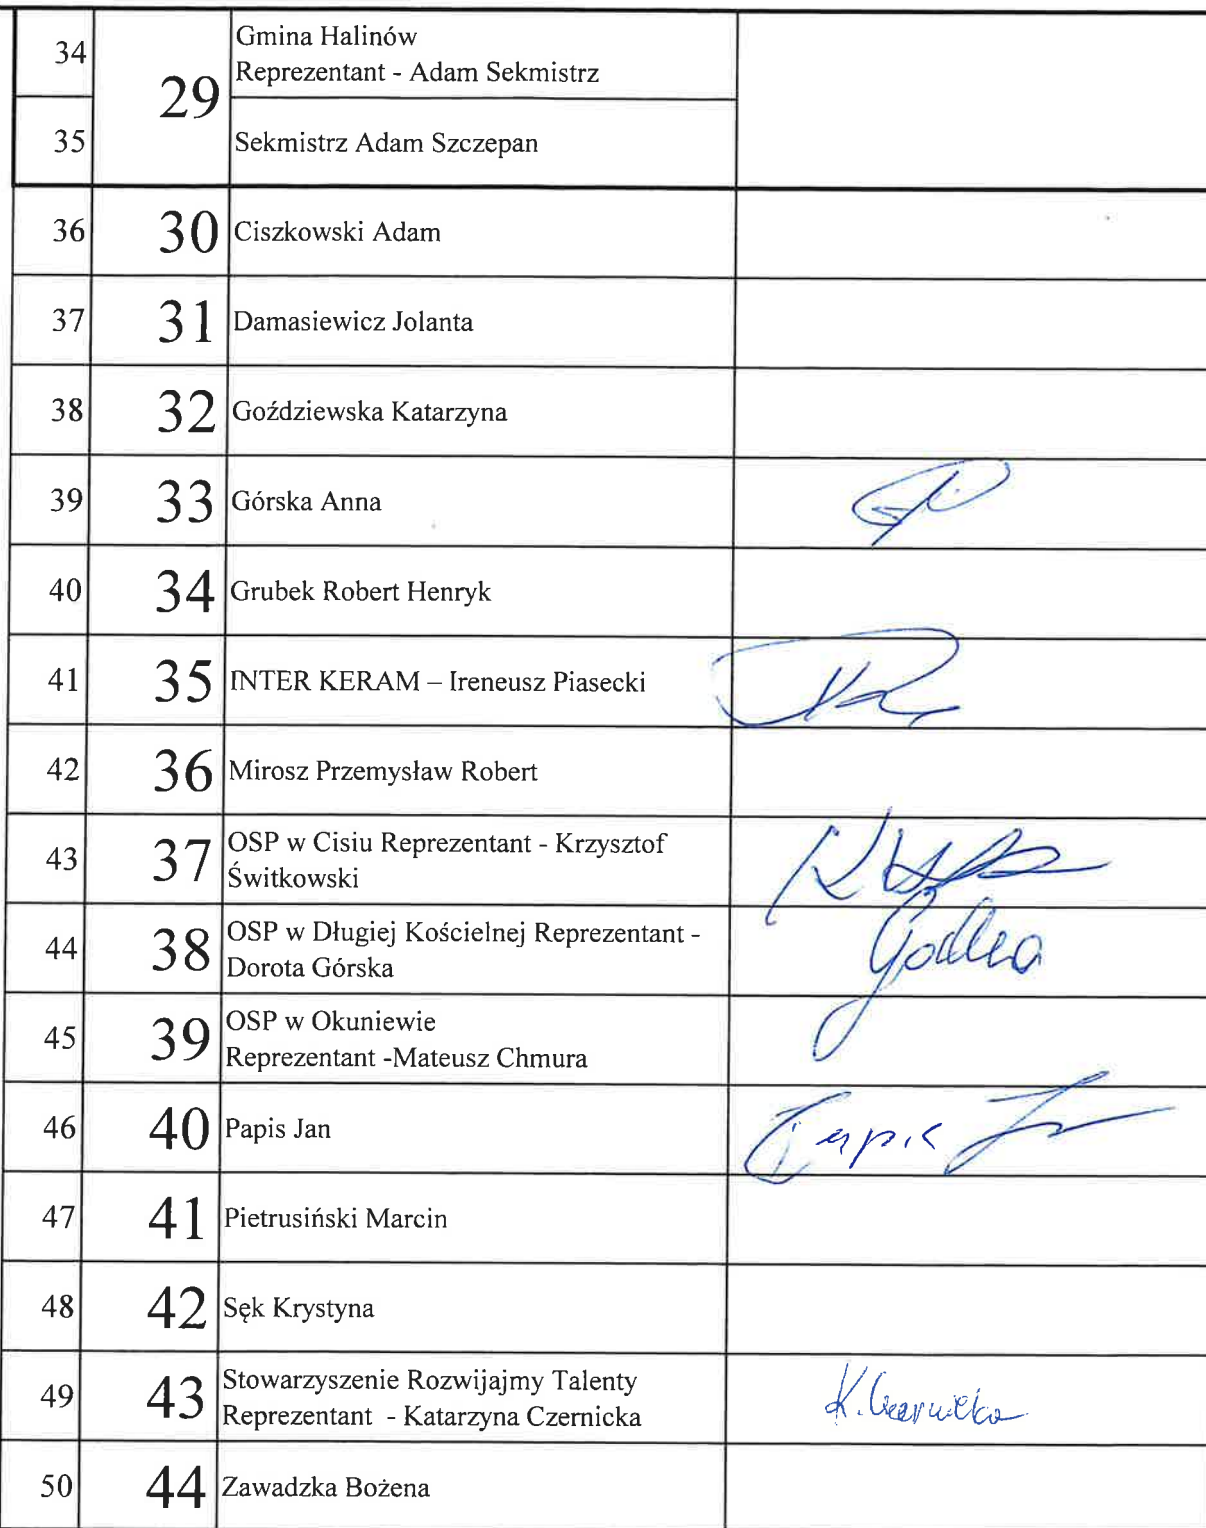 34
29
Gmina Halinów
Reprezentant - Adam Sekmistrz
35
Sekmistrz Adam Szczepan
36 30 Ciszkowski Adam
37 31 Damasiewicz Jolanta
38 32 Goździewska Katarzyna
39 33 Górska Anna
40 34 Grubek Robert Henryk
41 35 INTER KERAM – Ireneusz Piasecki
42 36 Mirosz Przemysław Robert
43 37 OSP w Cisiu Reprezentant - Krzysztof
Świtkowski
44 38 OSP w Długiej Kościelnej Reprezentant -
Dorota Górska
45 39 OSP w Okuniewie
Reprezentant -Mateusz Chmura
46 40 Papis Jan
47 41 Pietrusiński Marcin
48 42 Sęk Krystyna
49 43 Stowarzyszenie Rozwijajmy Talenty
Reprezentant - Katarzyna Czernicka K. Czernicka
50 44 Zawadzka Bożena